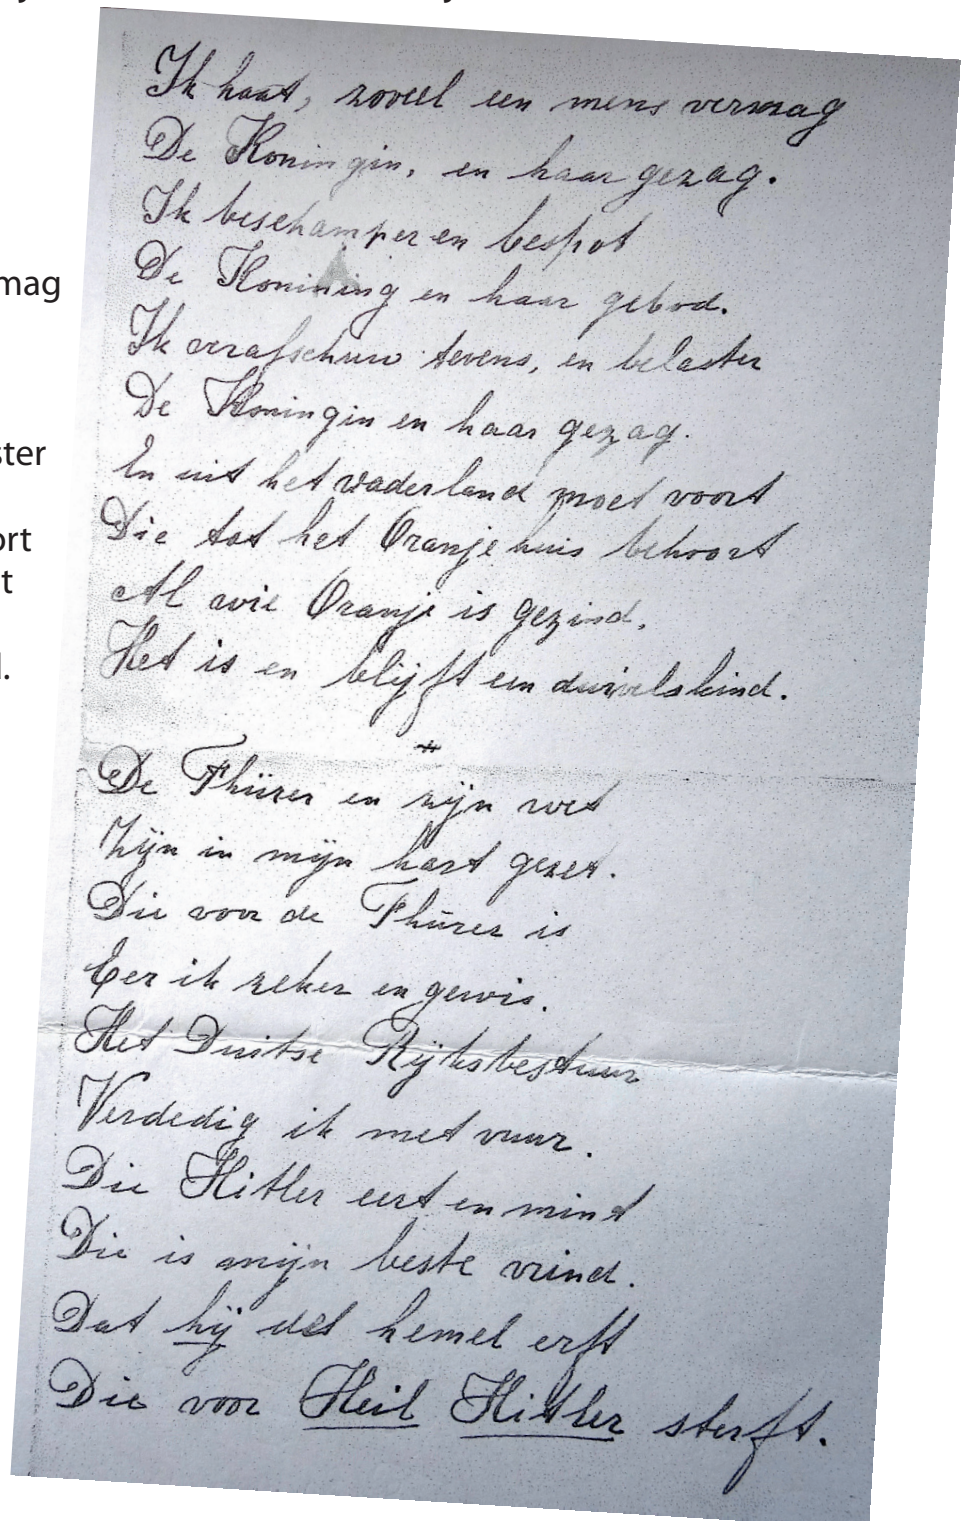 mag
ster
ort
t
l.
Ik haat, zoveel een mens vermag
De Koningin, en haar gezag.
Ik beschamper en bespot
De Konining en haar gebod.
Ik verafschuw tevens, en belaster
De Koningin en haar gezag.
En uit het vaderland moet voort
Die tot het Oranjehuis behoort
Al wie Oranje is gezind,
Het is en blijft een duivelskind.
*
De Fhürer en zijn wet
Zijn in mijn hart gezet.
Die voor de Fhürer is
Eer ik zeker en gewis.
Het Duitse Rijksbestuur
Verdedig ik met vuur.
Die Hitler eert en mint
Die is mijn beste vrind.
Dat hij de hemel erft
Die voor Heil Hitler sterft.